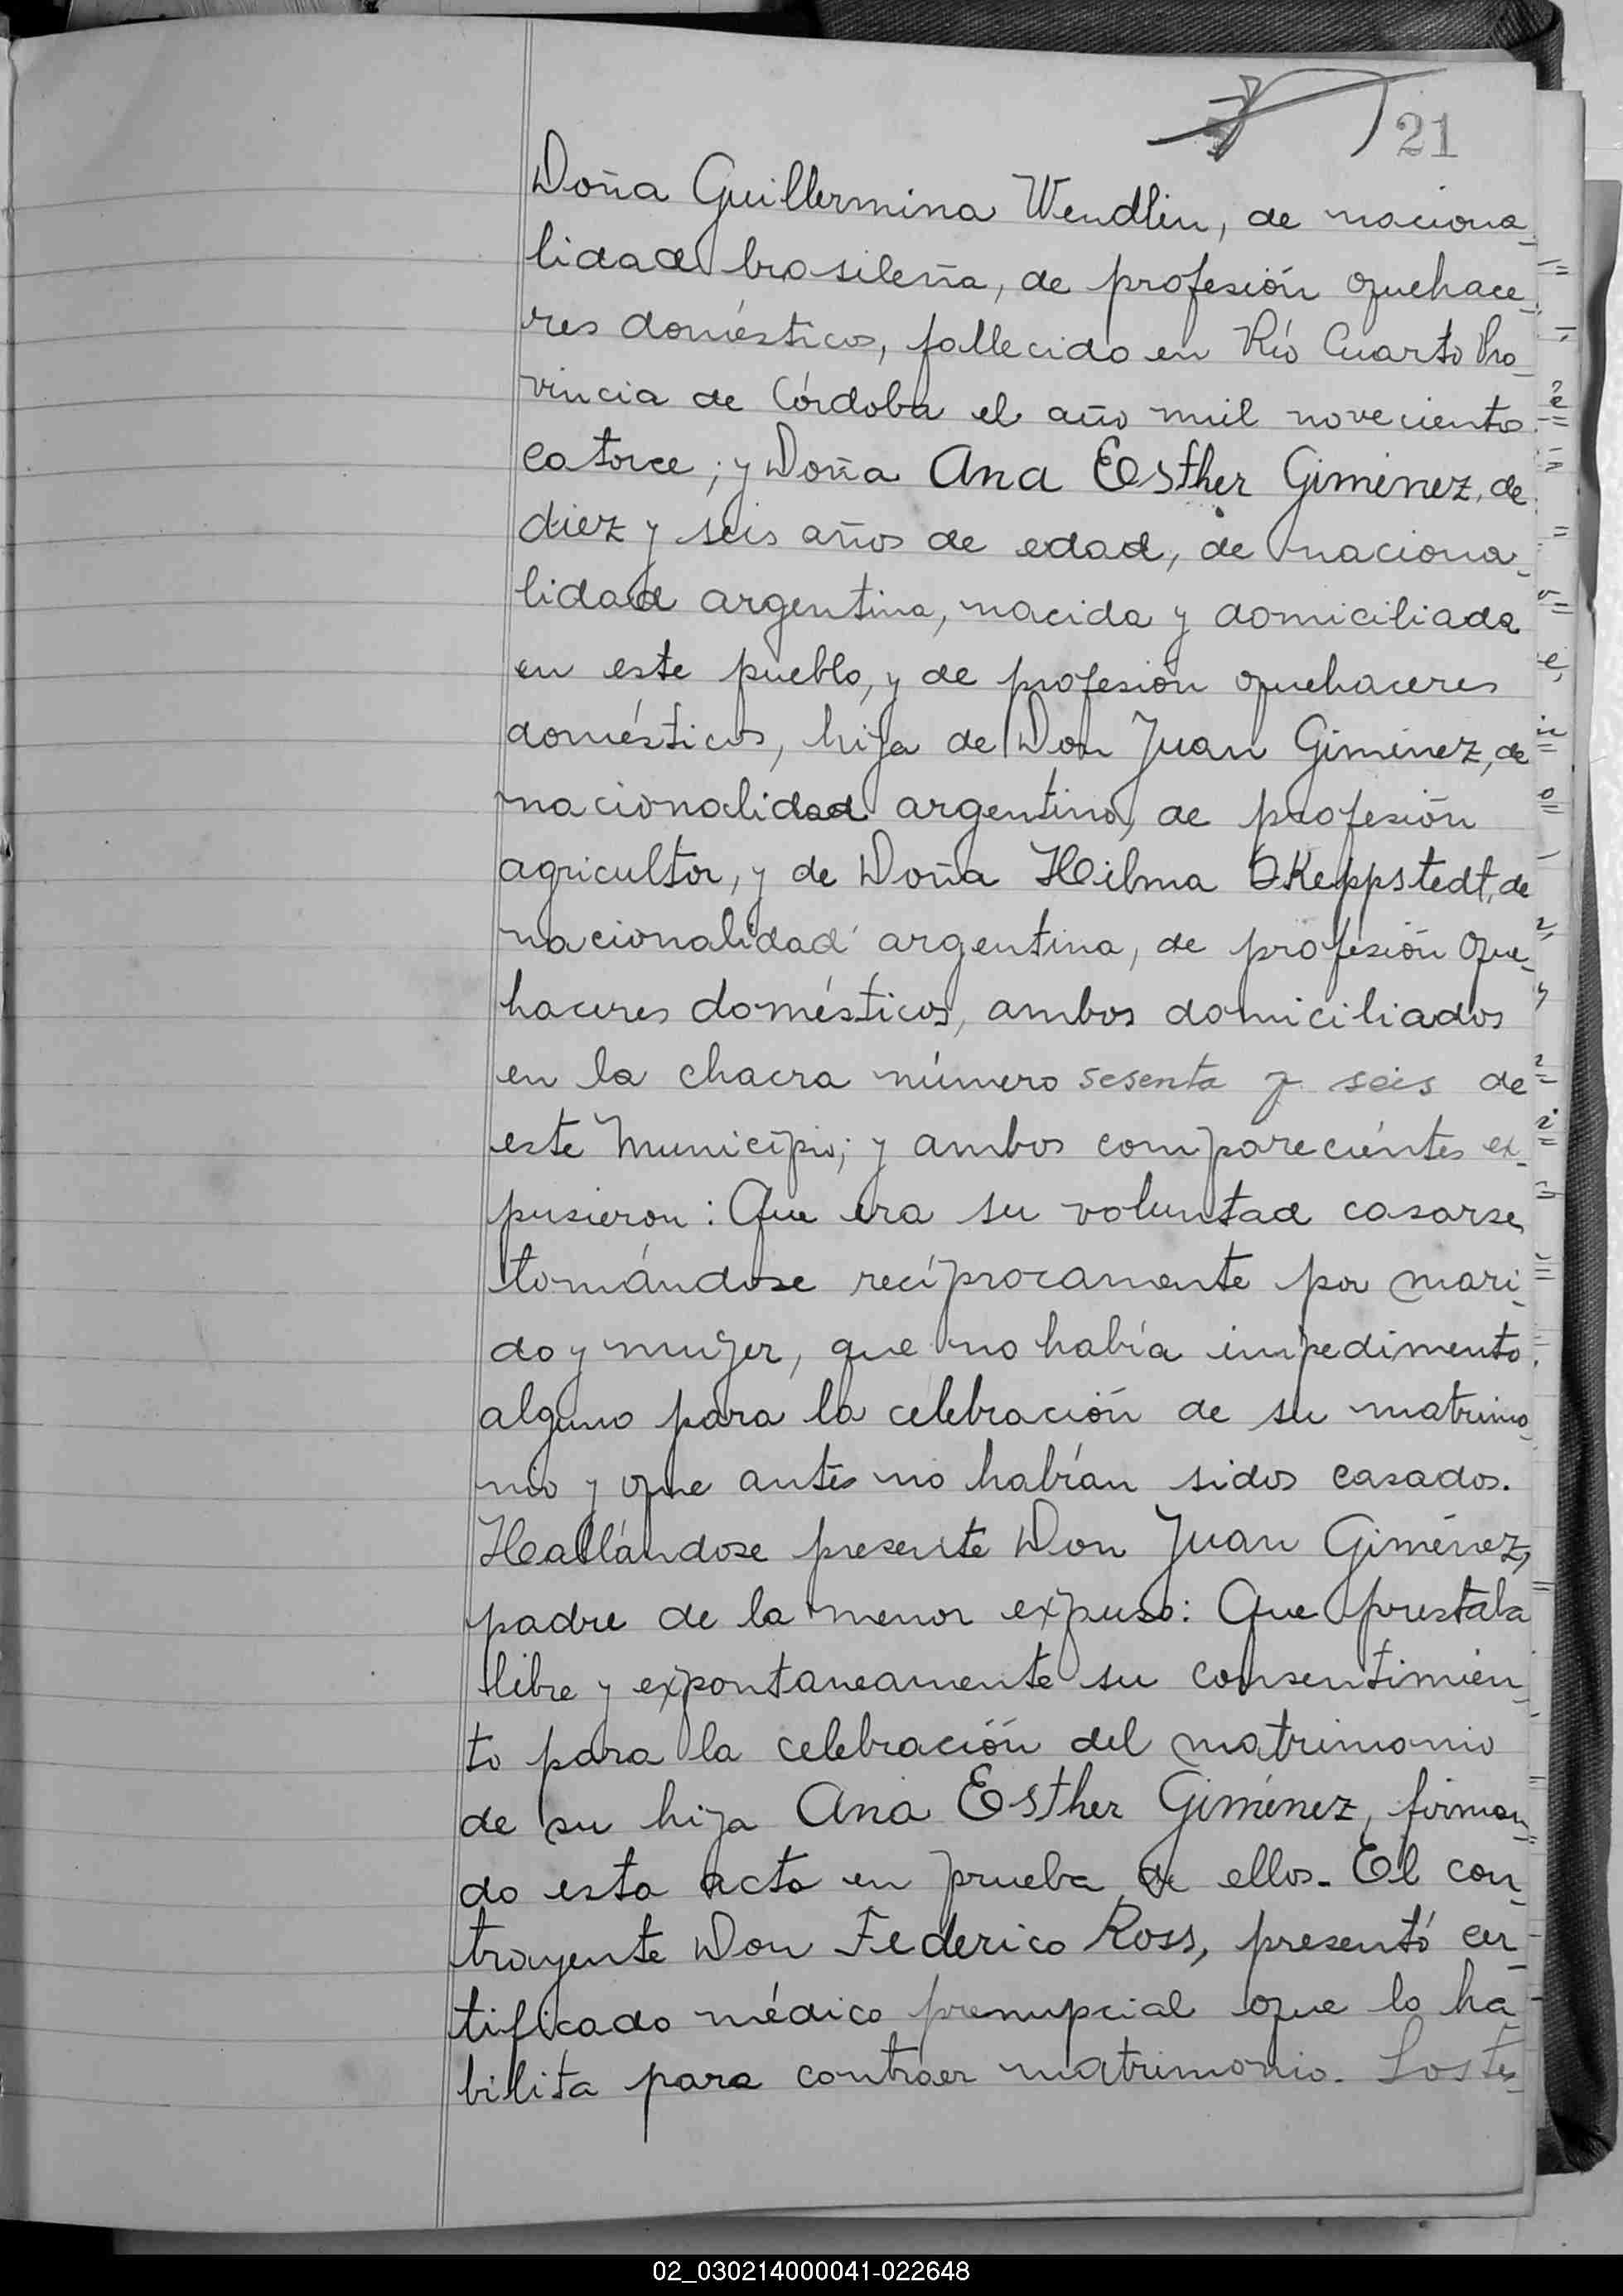 21
Doña Guillermina Wendlin, de naciona-
lidad brasileña, de profesión quehace-
res domésticos, fallecida en Río Cuarto Pro-
vincia de Córdoba el año mil novecientos
catorce; y Doña Ana Esther Giménez, de
diez y seis años de edad, de naciona-
lidad argentina, nacida y domiciliada
en este pueblo, y de profesión quehaceres
domésticos, hija de Don Juan Giménez, de
nacionalidad argentina, de profesión
agricultor, y de Doña Hilma Keppstedt, de
nacionalidad argentina, de profesión que-
haceres domésticos, ambos domiciliados
en la chacra número sesenta y seis de
este Municipio; y ambos comparecientes ex-
pusieron: Que era su voluntad casarse
tomándose recíprocamente por mari-
do y mujer, que no había impedimento
alguno para la celebración de su matrimo-
nio y que antes no habían sidos casados.
Hallándose presente Don Juan Giménez,
padre de la menor expuso: Que prestaba
libre y expontaneamente su consentimien-
to para la celebración del matrimonio
de su hija Ana Esther Giménez, firman-
do esta acta en prueba de ellos. El con-
trayente Don Federico Ross, presentó cer-
tificado médico prenupcial que lo ha-
bilita para contraer matrimonio. Los tes-
02_030214000041-022648